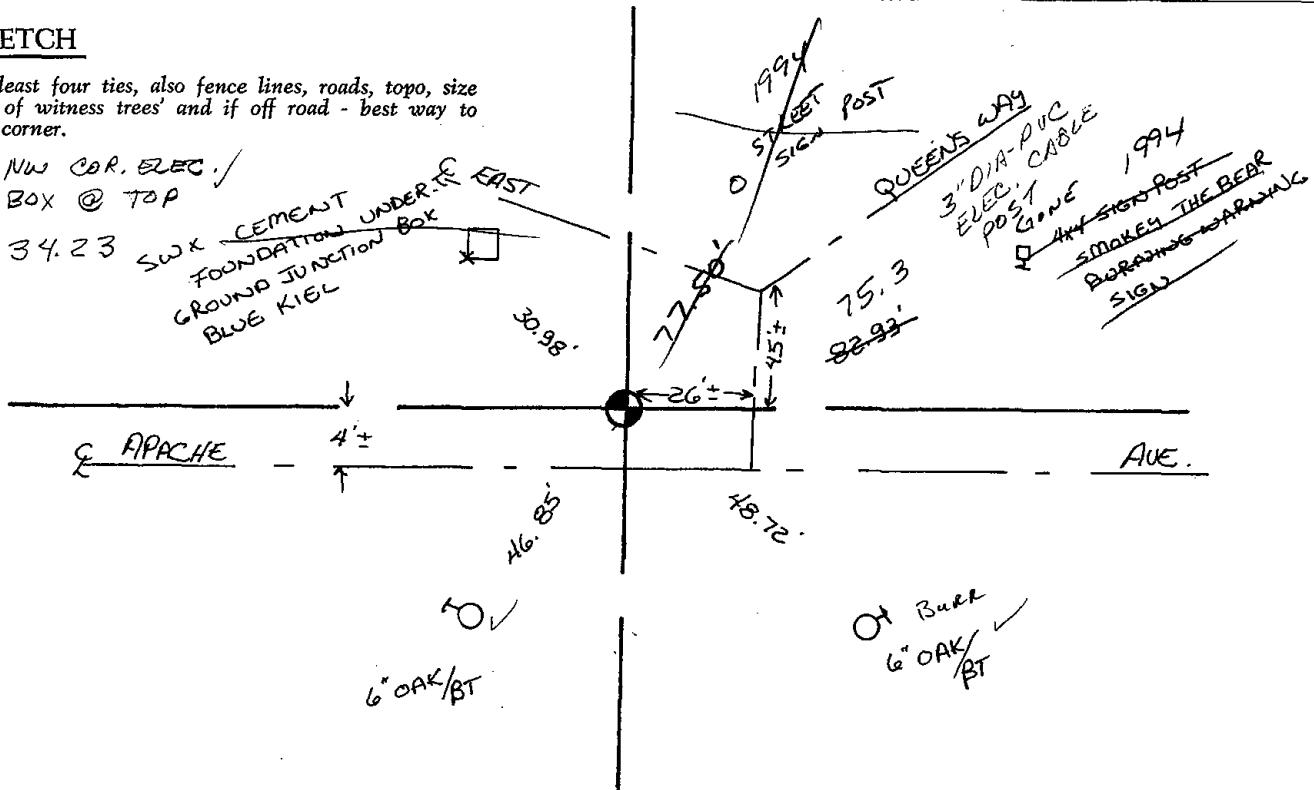 ETCH
least four ties, also fence lines, roads, topo, size
of witness trees' and if off road - best way to
corner.
NW COR. ELEC.
BOX @ TOP
34.23
SWX CEMENT
FOUNDATION UNDER
GROUND JUNCTION BOX
BLUE KIEL
℄ EAST
30.98'
1994
STREET
SIGN POST
77.50'
QUEENS WAY
3" DIA-PVC
ELEC. CABLE
POST
GONE 1994
4x4 SIGN POST
SMOKEY THE BEAR
BURNING WARNING
SIGN
75.3
82.93'
45'±
26'±
4'±
℄ APACHE AVE.
46.85'
48.72'
6" OAK/BT
BURR
6" OAK/BT